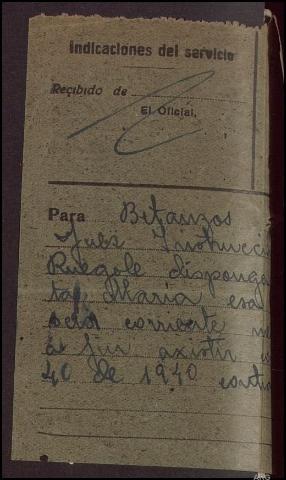 Indicaciones del servicio
Recibido de
El Oficial,
Para Betanzos
Juez Instrucci
Ruegole disponga
María esa
seis corriente
a fin axistir
40 de 1940 contr